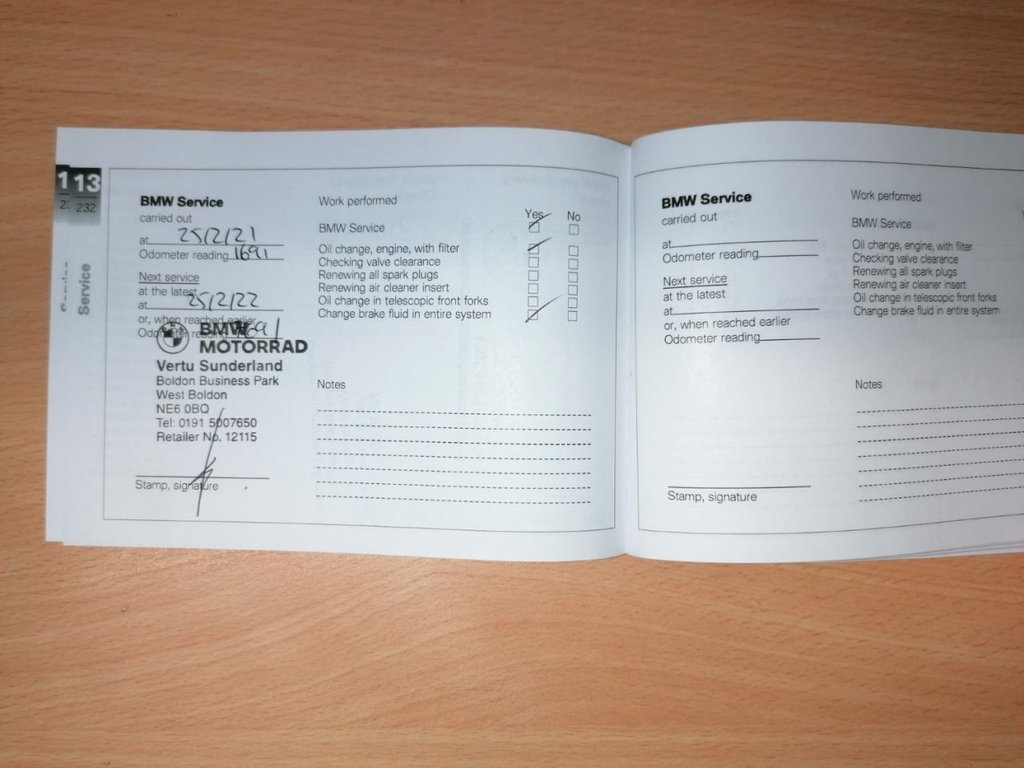 113
232
Service
BMW Service
carried out
at 25/2/21
Odometer reading 1691
Next service
at the latest
at 25/2/22
or, when reached earlier
Odometer reading
BMW
MOTORRAD
Vertu Sunderland
Boldon Business Park
West Boldon
NE6 0BQ
Tel: 0191 5007650
Retailer No. 12115
Stamp, signature
Work performed
Yes No
BMW Service
Oil change, engine, with filter
Checking valve clearance
Renewing all spark plugs
Renewing air cleaner insert
Oil change in telescopic front forks
Change brake fluid in entire system
Notes
BMW Service
carried out
at
Odometer reading
Next service
at the latest
at
or, when reached earlier
Odometer reading
Stamp, signature
Work performed
BMW Service
Oil change, engine, with filter
Checking valve clearance
Renewing all spark plugs
Renewing air cleaner insert
Oil change in telescopic front forks
Change brake fluid in entire system
Notes